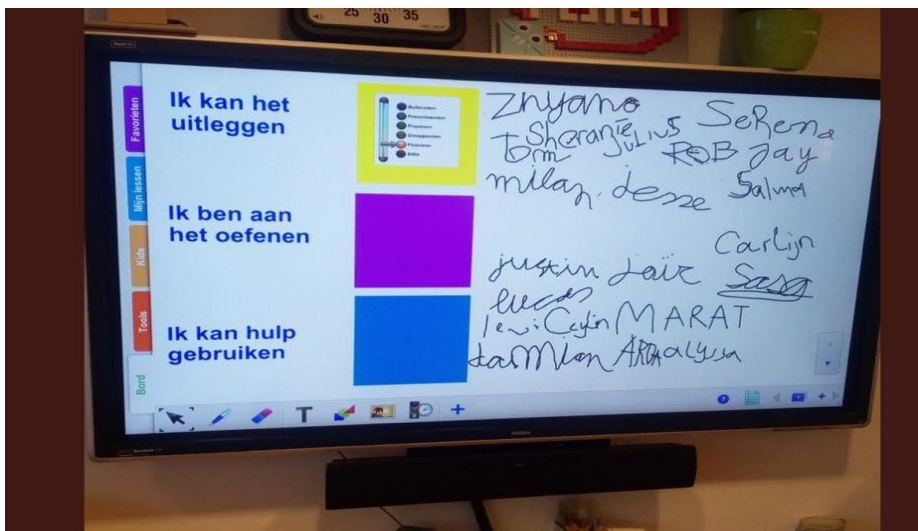 25 30 35
Favorieten
Mijn lessen
Kids
Tools
Bord
Ik kan het
uitleggen
Ik ben aan
het oefenen
Ik kan hulp
gebruiken
Znyano SeRena
Sheranie Julius
Tom ROB Jay
milan. desse Salma
Carlijn
justin Jaïr Sasa
lucas
levi Caylin MARAT
damian ARDA alyssa
T